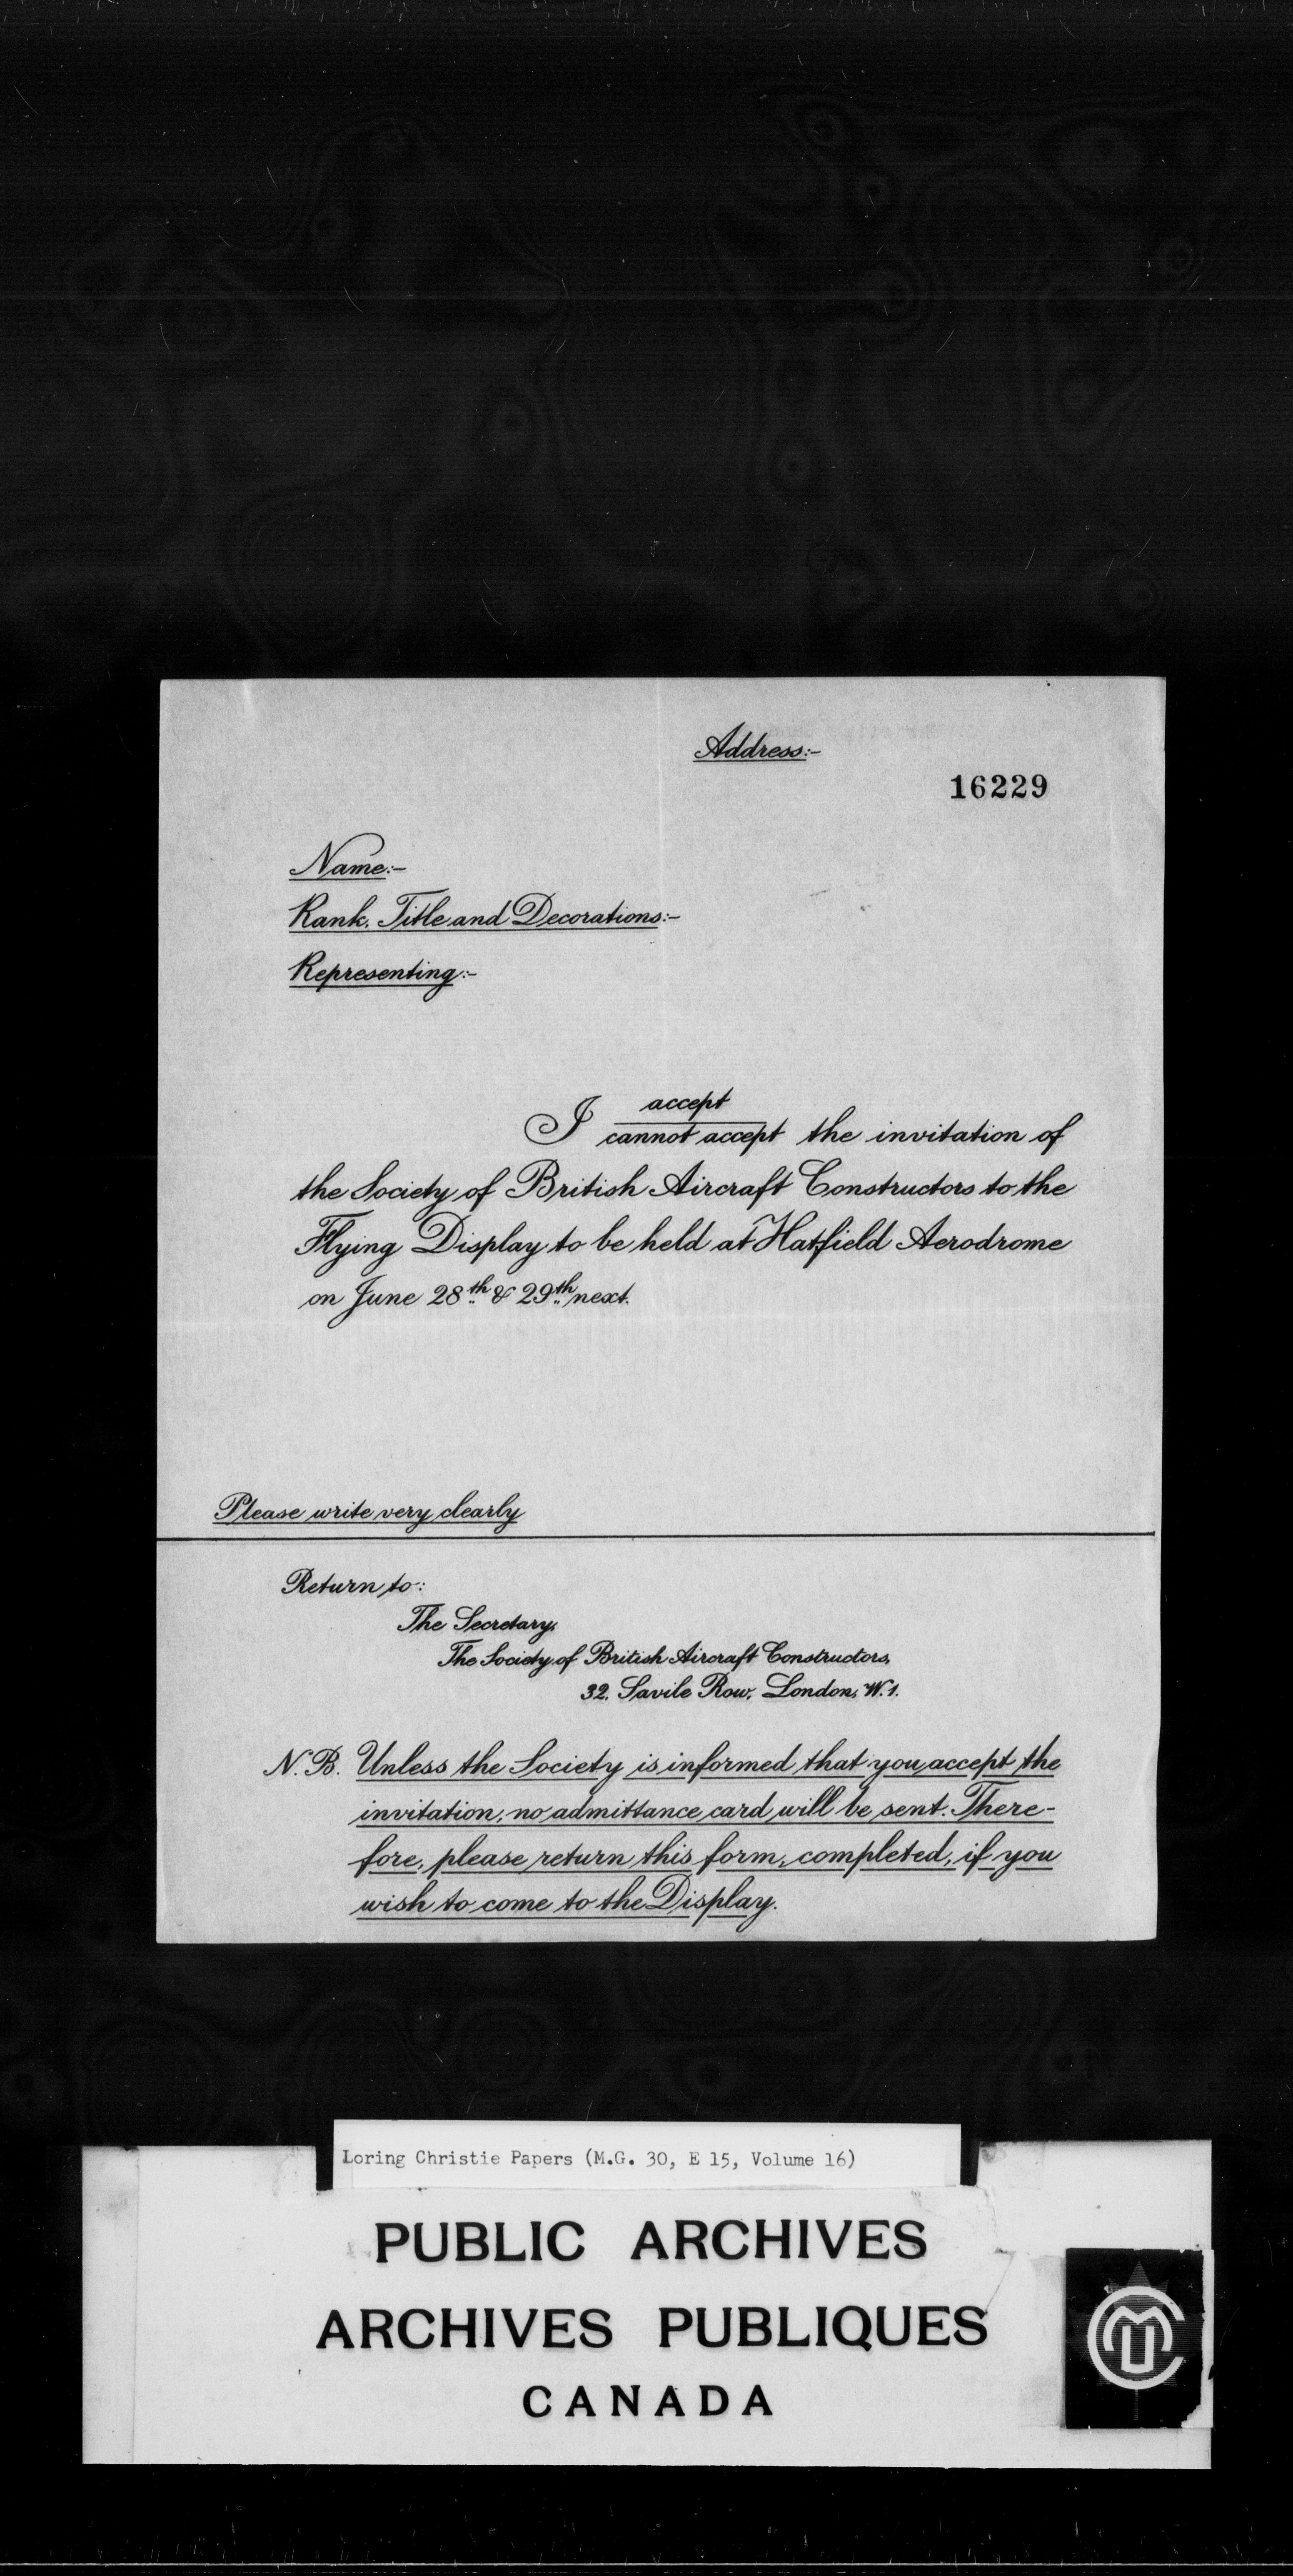 Address:-
16229
Name:-
Rank, Title and Decorations:-
Representing:-
accept
I cannot accept the invitation of
the Society of British Aircraft Constructors to the
Flying Display to be held at Hatfield Aerodrome
on June 28th & 29th next.
Please write very clearly
Return to:-
The Secretary,
The Society of British Aircraft Constructors,
32, Savile Row, London, W.1.
N.B. Unless the Society is informed that you accept the
invitation, no admittance card will be sent. There-
fore, please return this form, completed, if you
wish to come to the Display.
Loring Christie Papers (M.G. 30, E 15, Volume 16)
PUBLIC ARCHIVES
ARCHIVES PUBLIQUES
CANADA